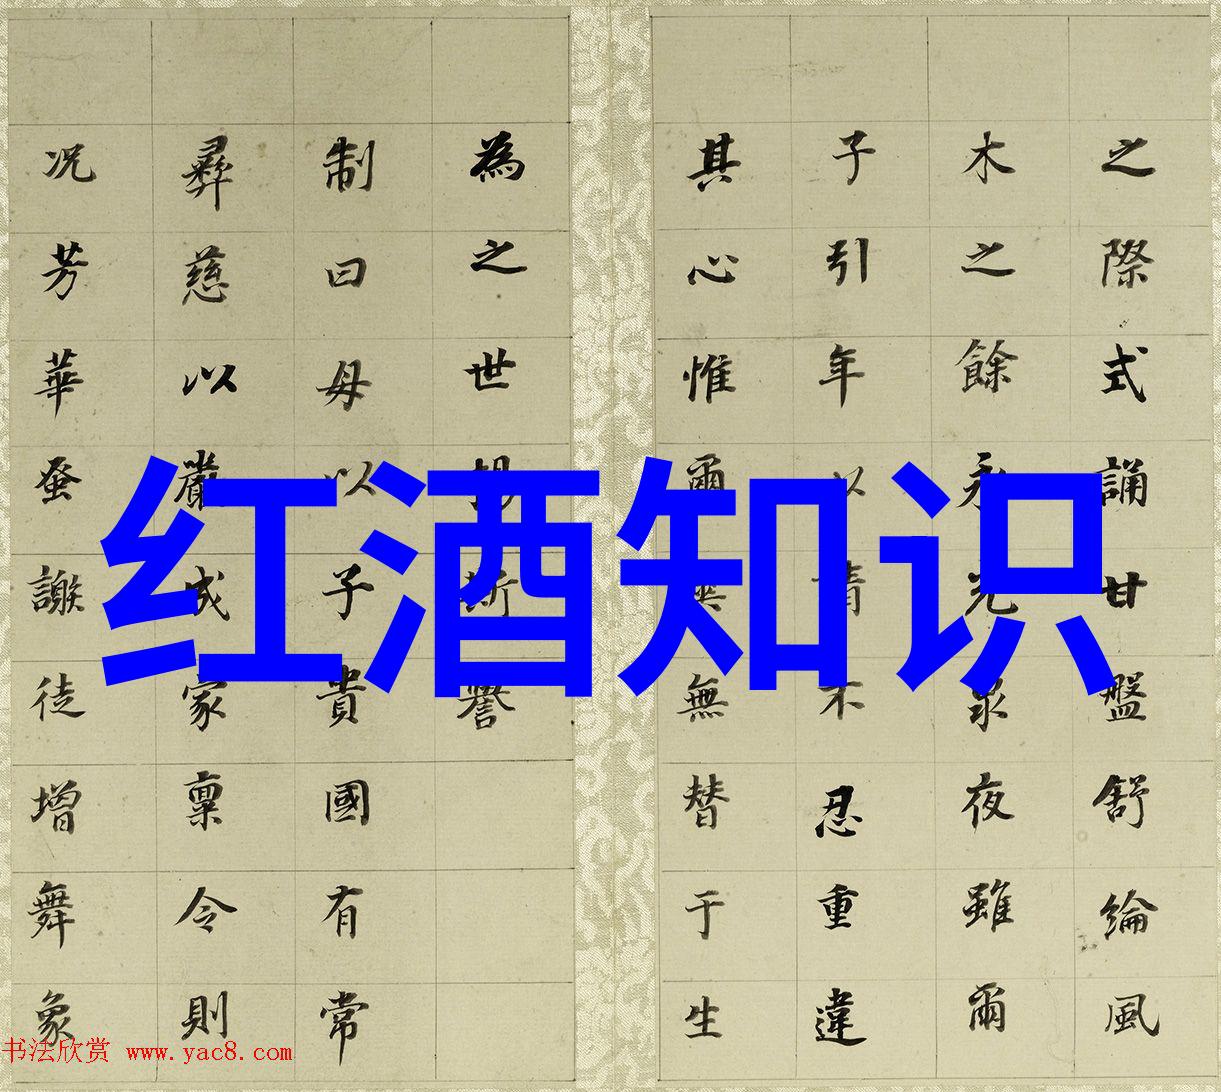 红酒知识
之際式誦甘盤舒綸風
木之餘永光泉夜雖爾
子引年以情不忍重違
其心惟爾無替于生
為之世揚斯譽
制曰母以子貴國有常
彝慈以嚴成家稟令則
况芳華蚤謝徒增舞象
书法欣赏 www.yac8.com